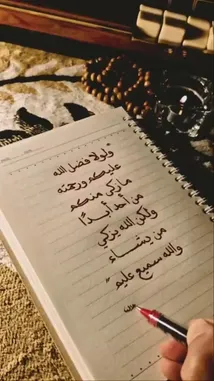 "ولولا فضل الله
عليكم ورحمته
ما زكى منكم
من أحد أبدًا
ولكن الله يزكي
من يشاء
والله سميع عليم"